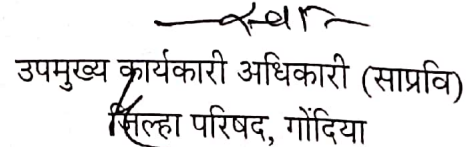 उपमुख्य कार्यकारी अधिकारी (साप्रवि)
जिल्हा परिषद, गोंदिया